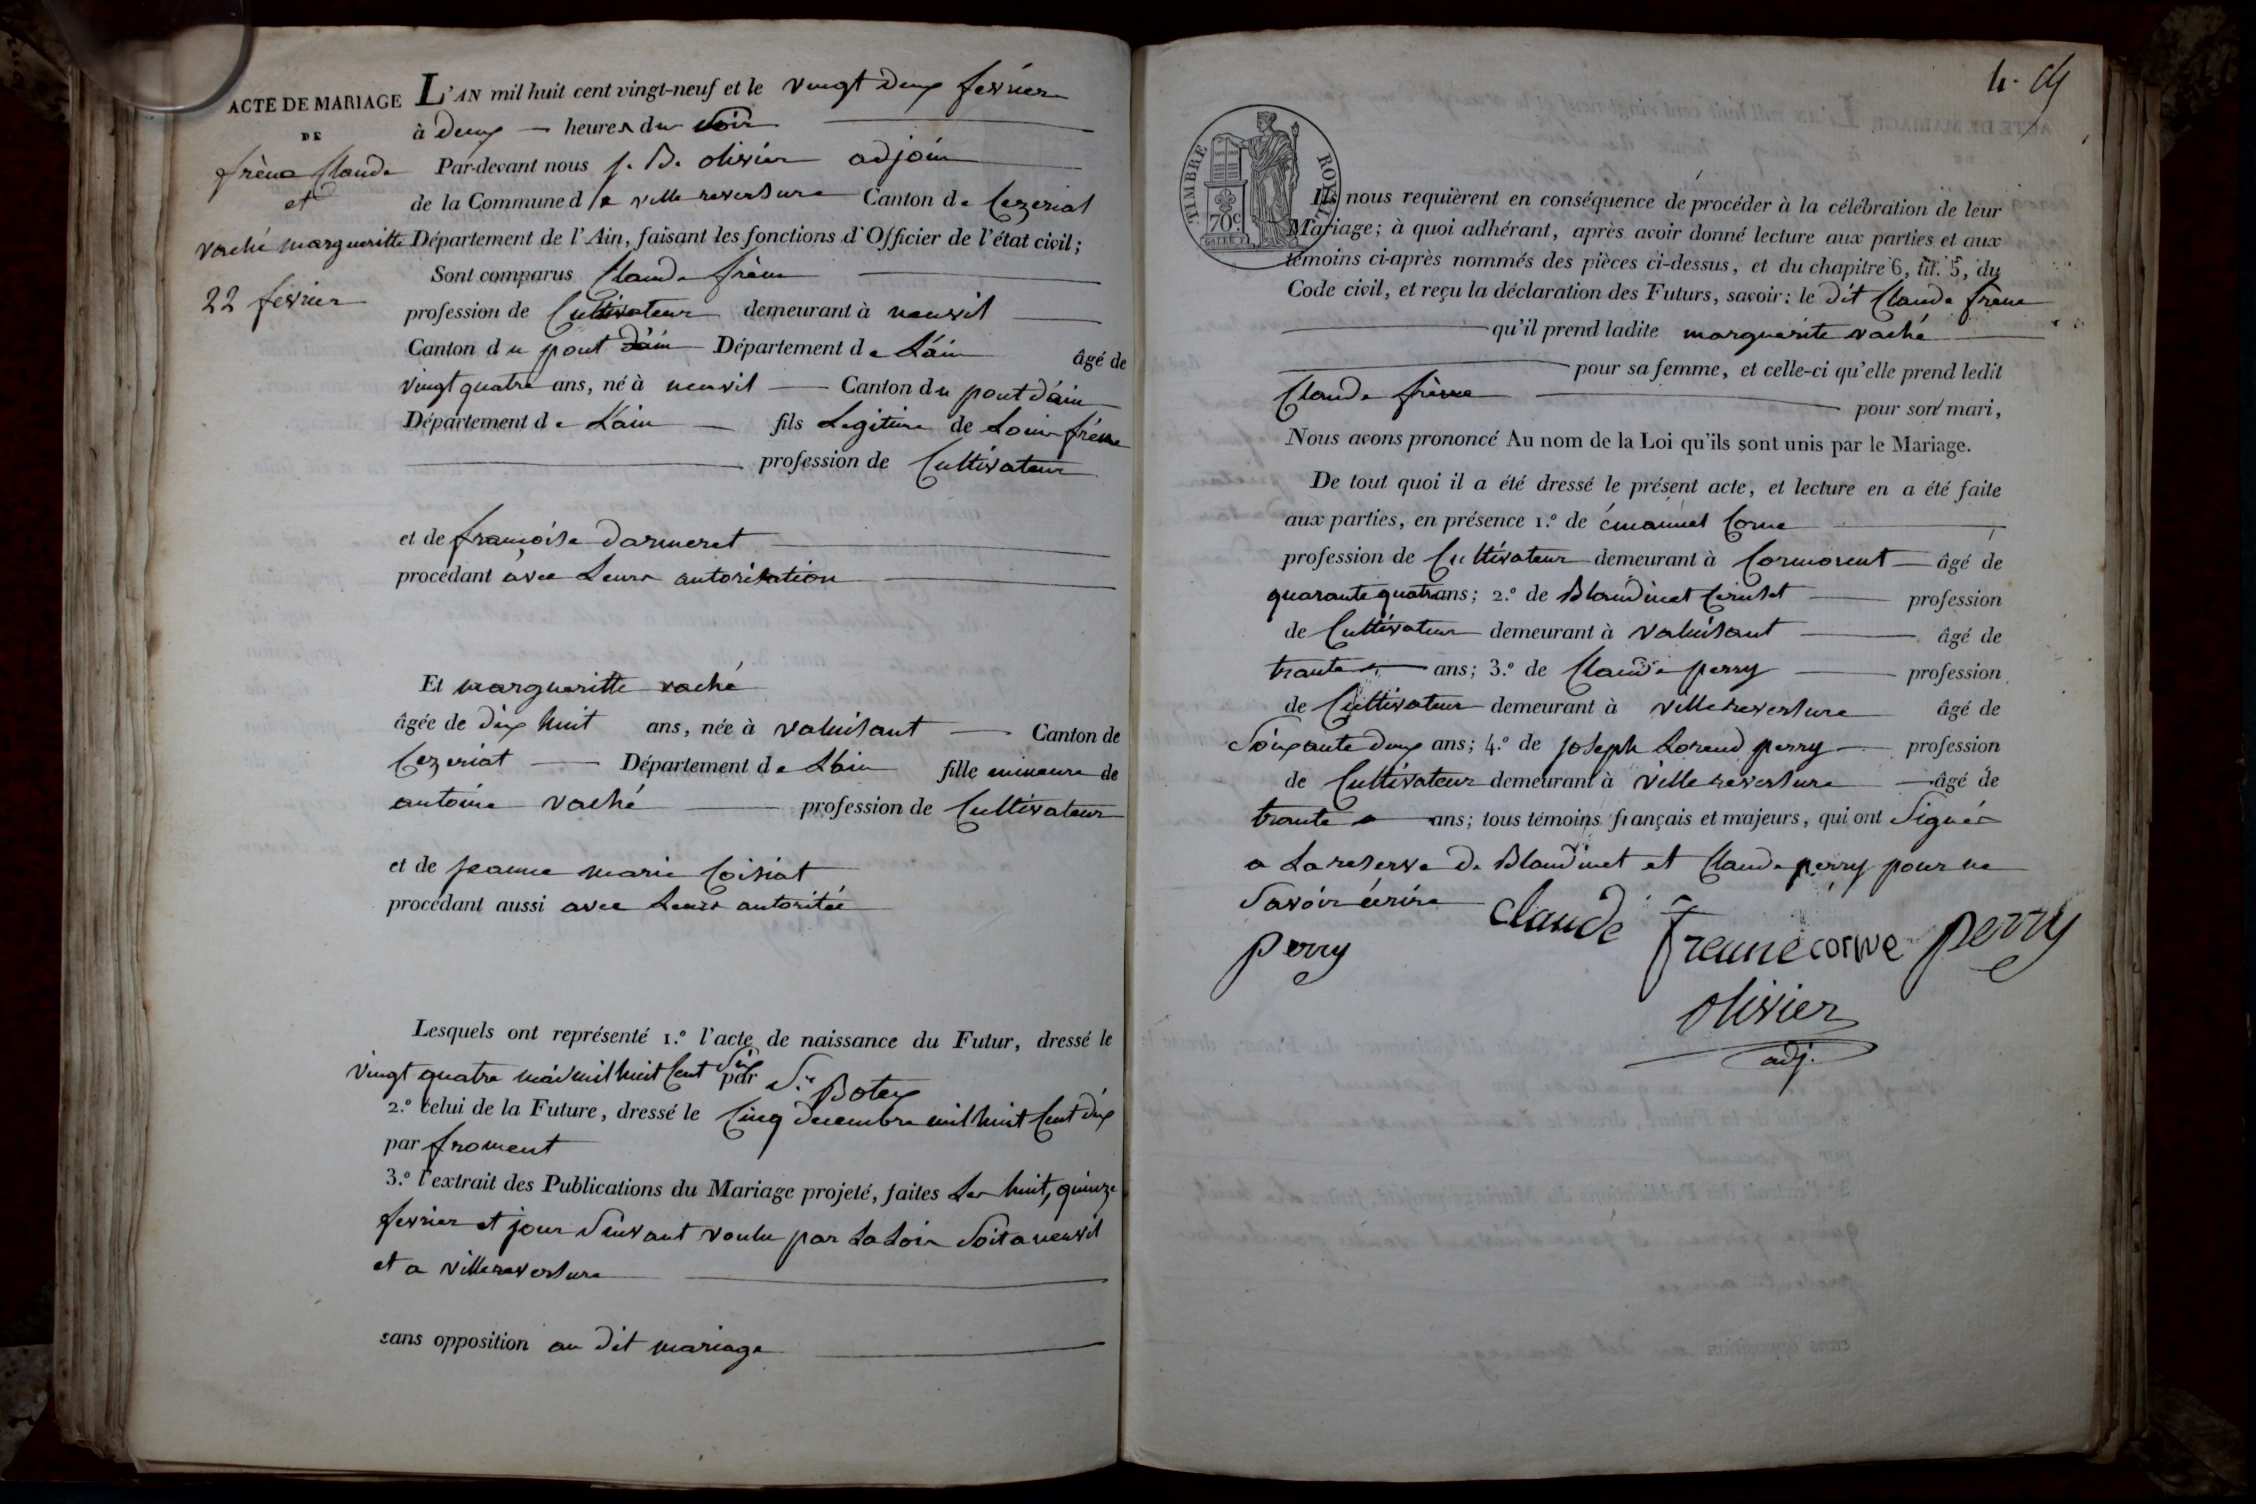 ACTE DE MARIAGE
DE
frène Claude
et
vaché margueritte
22 fevrier
L'AN mil huit cent vingt-neuf et le vingt deux fevrier
à deux heures du soir
Par-devant nous j. B. olivier adjoin
de la Commune de villereversure Canton de Cezeriat
Département de l'Ain, faisant les fonctions d'Officier de l'état civil;
Sont comparus Claude frène
profession de Cultivateur demeurant à neuvil
Canton du pont d'ain Département de L'ain âgé de
vingt quatre ans, né à neuvil Canton du pont d'ain
Département de L'ain fils Legitime de Louis frène
profession de Cultivateur
et de françoise darmeret
procédant avec Leurs autorisation
Et margueritte vaché
âgée de dix huit ans, née à valuisant Canton de
Cezeriat Département de L'ain fille mineure de
antoine vaché profession de Cultivateur
et de jeanne marie Coisiat
procédant aussi avec Leurs autoritée
Lesquels ont représenté 1.º l'acte de naissance du Futur, dressé le
vingt quatre mai mil huit Cent Six par S.r Botex
2.º celui de la Future, dressé le Cinq decembre mil huit Cent dix
par froment
3.º l'extrait des Publications du Mariage projeté, faites Les huit, quinze
fevrier et jour Suivant voulu par La Loix Soit a neuvil
et a villereversure
sans opposition au dit mariage
4.
TIMBRE ROYAL
70 c
Ils nous requièrent en conséquence de procéder à la célébration de leur
Mariage; à quoi adhérant, après avoir donné lecture aux parties et aux
témoins ci-après nommés des pièces ci-dessus, et du chapitre 6, tit. 5, du
Code civil, et reçu la déclaration des Futurs, savoir: le dit Claude frène
qu'il prend ladite marguerite vaché
pour sa femme, et celle-ci qu'elle prend ledit
Claude frène pour son mari,
Nous avons prononcé Au nom de la Loi qu'ils sont unis par le Mariage.
De tout quoi il a été dressé le présent acte, et lecture en a été faite
aux parties, en présence 1.º de émanuel Corne
profession de Cultivateur demeurant à Cormorent âgé de
quarante quatre ans; 2.º de Blandinet profession
de Cultivateur demeurant à valuisant âgé de
trante ans; 3.º de Claude perry profession
de Cultivateur demeurant à villereversure âgé de
Soixante deux ans; 4.º de joseph Lorend perry profession
de Cultivateur demeurant à villereversure âgé de
trante ans; tous témoins français et majeurs, qui ont Signés
a La reserve de Blandinet et Claude perry pour ne
Savoir écrire
claude frenne corne perry
perry
olivier
adj.